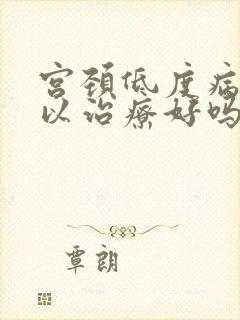 宫颈低度病
以治疗好吗
覃朗